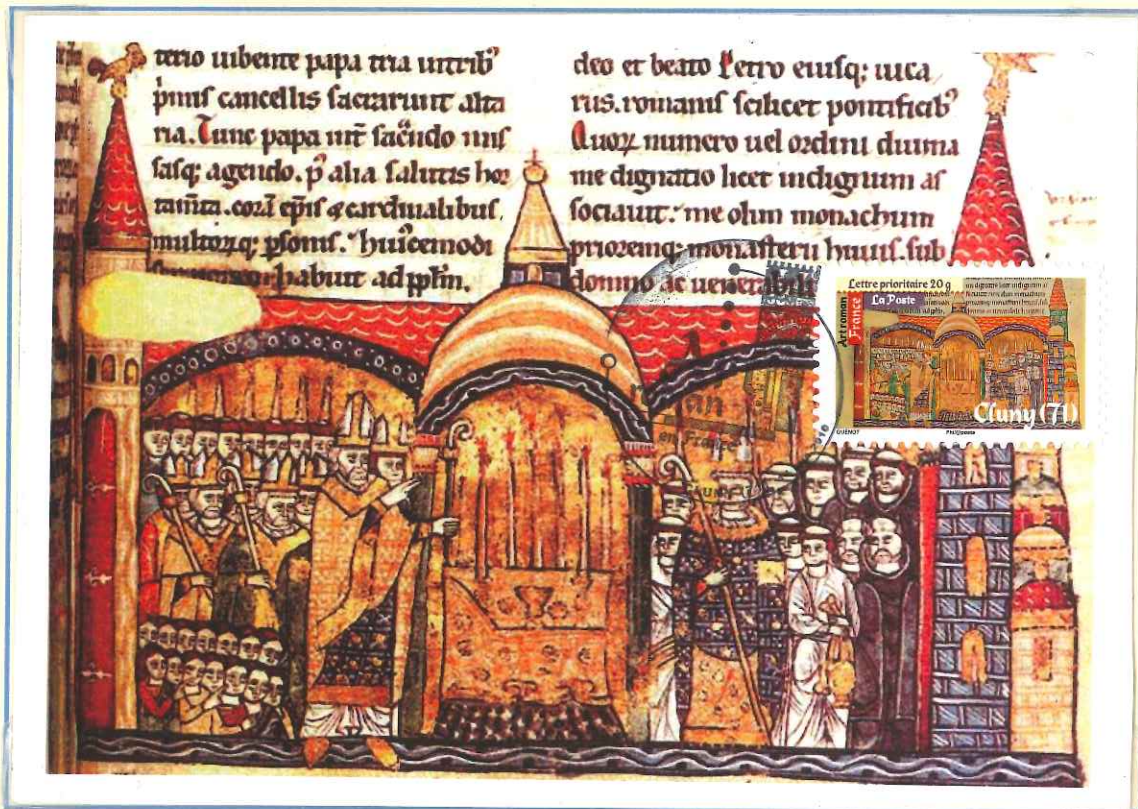 terio iubente papa tria uitrib'
primis cancellis sacrarunt alta
ria. Tunc papa int̄ saćiendo mis
sasq; agendo. p̄ alia salutis hor
tam̄ta. corā ep̄is & cardinalibus,
multorȝq; p̄sonis. huiꝰcemodi
habuit ad pplm̄.
deo et beato Petro eiusq; uica
riis. romanis scilicet pontificib'
Quoꝝ numero uel ordini diuina
me dignatio licet indignum as
sociauit. me olim monachum
prioremq; monasterii huius. sub
domno ac uenerabili
Lettre prioritaire 20 g
La Poste
France
Art roman
Cluny (71)
Phil@poste
Art
roman
en France